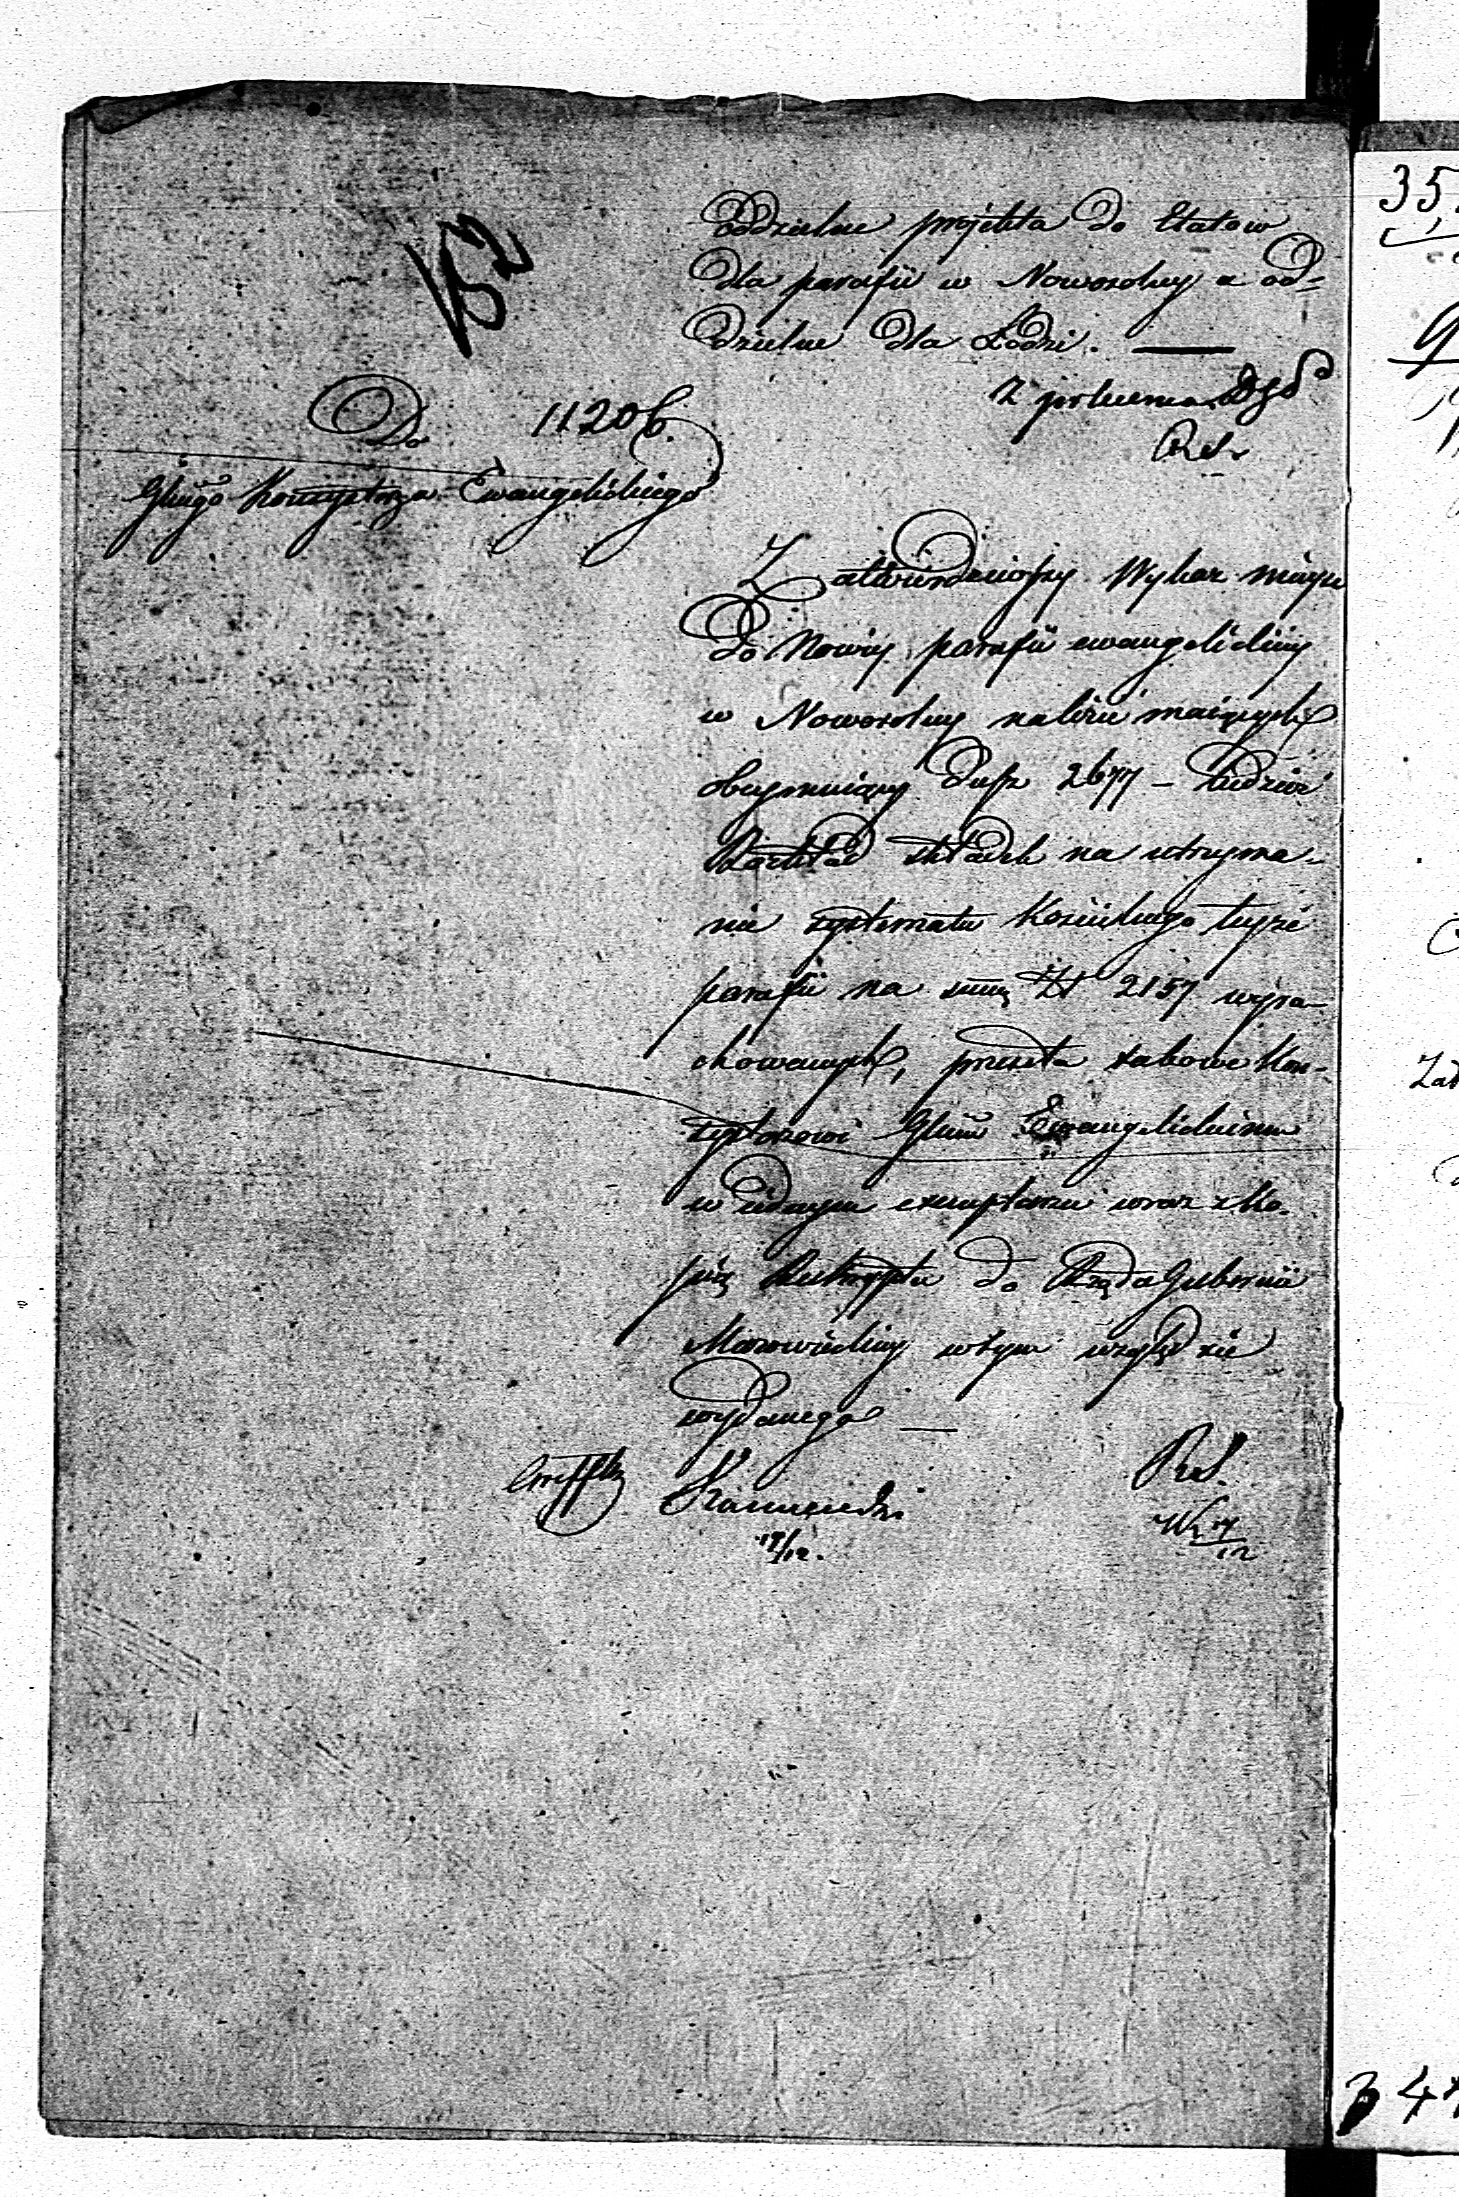 152
Oddzielne projekta do Etatow
dla parafii w Nowosolny a od-
dzielne dla Łodzi. —
Z polecenia
R. S.
Do 11206.
Głnego Konsystorza Ewangelickiego
Zatwierdziwszy Wykaz miejsc
do Nowey parafii ewangelickiey
w Nowosolny należeć maiących
obeymuiący dusz 2677 – tudzież
Rozkład składek na utrzyma-
nie systematu Kościelnego teyże
parafii na summę Zł 2157 wyra-
chowanych, przesyła takowe Kon-
systorzowi Głmu Ewangelickiemu
w iednym exemplarzu wraz z Ko-
piią Reskryptu do Rządu Gubernii
Mazowieckiey w tym względzie
wydanego —
R. S.
Kamieński
17/12.
17/12
35
9
Zat
3 4